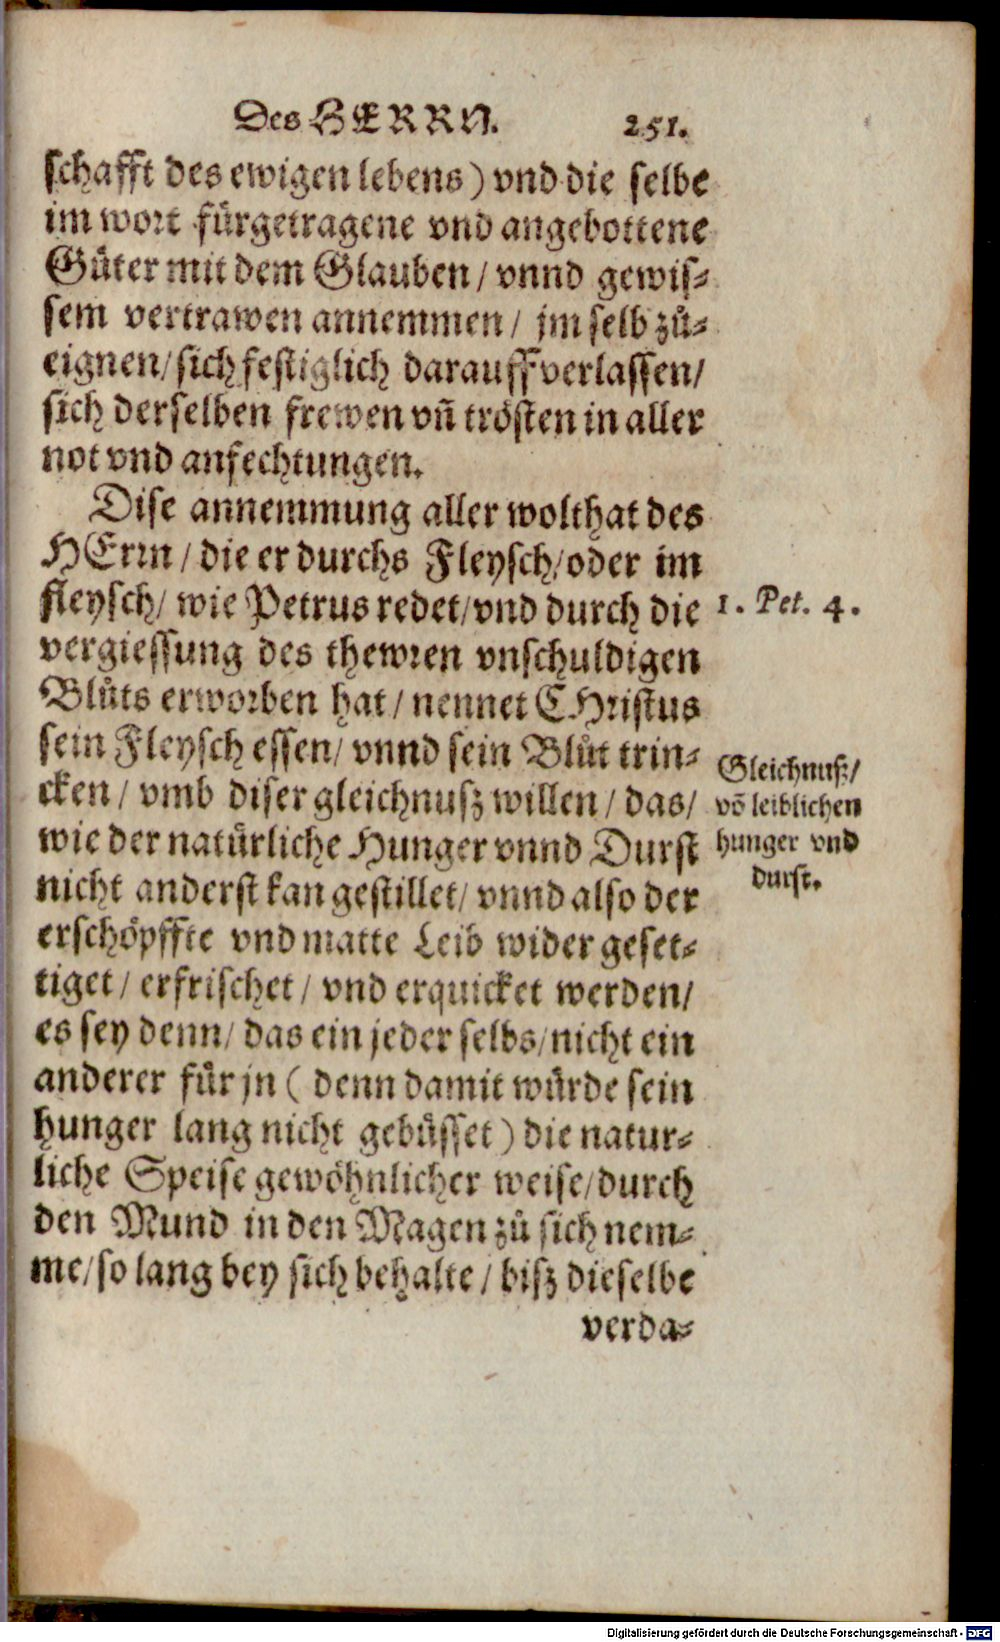 Des HERRN. 251.
schafft des ewigen lebens) vnd die selbe
im wort fürgetragene vnd angebottene
Güter mit dem Glauben / vnnd gewis⸗
sem vertrawen annemmen / jm selb zů⸗
eignen / sich festiglich darauff verlassen /
sich derselben frewen vñ trösten in aller
not vnd anfechtungen.
Dise annemmung aller wolthat des
HErrn / die er durchs Fleysch / oder im
fleysch / wie Petrus redet / vnd durch die
1. Pet. 4.
vergiessung des thewren vnschuldigen
Blůts erworben hat / nennet CHristus
sein Fleysch essen / vnnd sein Blůt trin⸗
cken / vmb diser gleichnusz willen / das /
Gleichnusz /
võ leiblichen
hunger vnd
durst.
wie der natürliche Hunger vnnd Durst
nicht anderst kan gestillet / vnnd also der
erschöpffte vnd matte Leib wider geset⸗
tiget / erfrischet / vnd erquicket werden /
es sey denn / das ein jeder selbs / nicht ein
anderer für jn ( denn damit würde sein
hunger lang nicht gebüsset ) die natur⸗
liche Speise gewöhnlicher weise / durch
den Mund in den Magen zů sich nem⸗
me / so lang bey sich behalte / bisz dieselbe
verda⸗
Digitalisierung gefördert durch die Deutsche Forschungsgemeinschaft - DFG